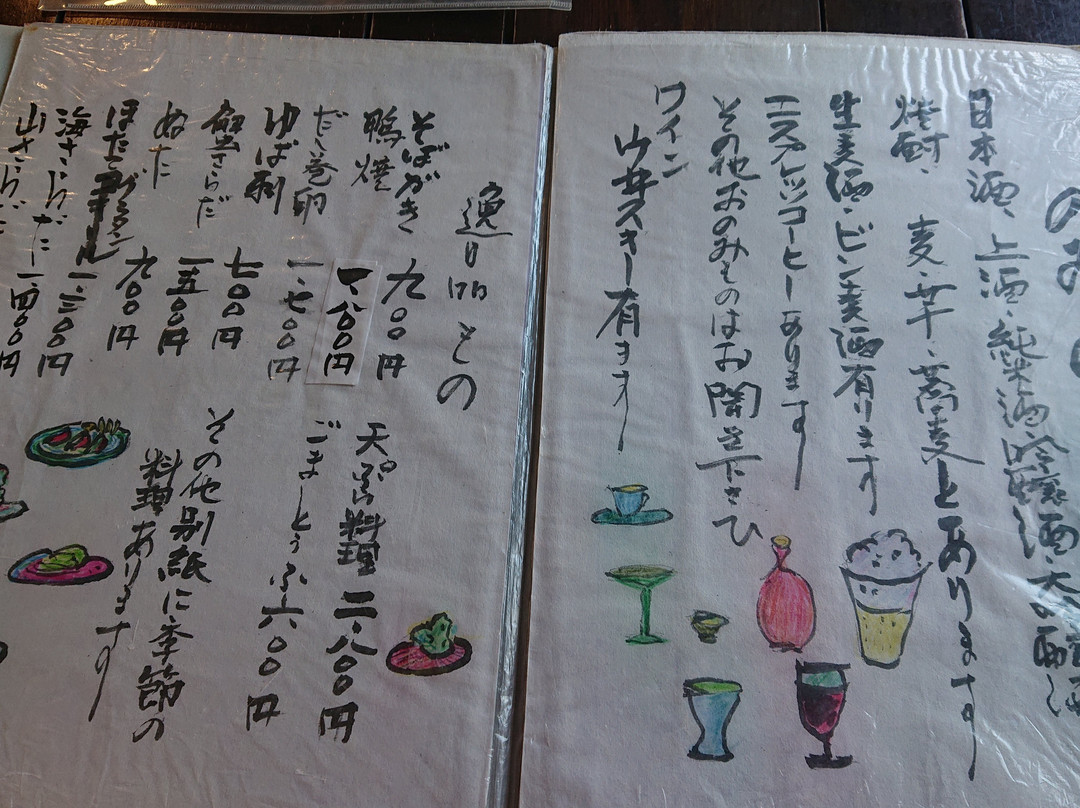 日本酒、上酒、純米酒、吟醸酒、大吟醸酒
焼酎、麦・芋・蕎麦とあります
生麦酒・ビン麦酒有ります
エスプレッソコーヒーあります
その他おのみものはお聞き下さひ
ワイン
ウ井スキー有ます
逸品もの
そばがき 九〇〇円
鴨焼 一、八〇〇円
だし巻卵 一、七〇〇円
ゆば刺 七〇〇円
蟹さらだ 一、五〇〇円
ぬた 九〇〇円
ほたてグラタン 一、三〇〇円
海さらだ 一、四〇〇円
山さらだ
天ぷら料理 二、八〇〇円
ごまとうふ 六〇〇円
その他別紙に季節の
料理あります